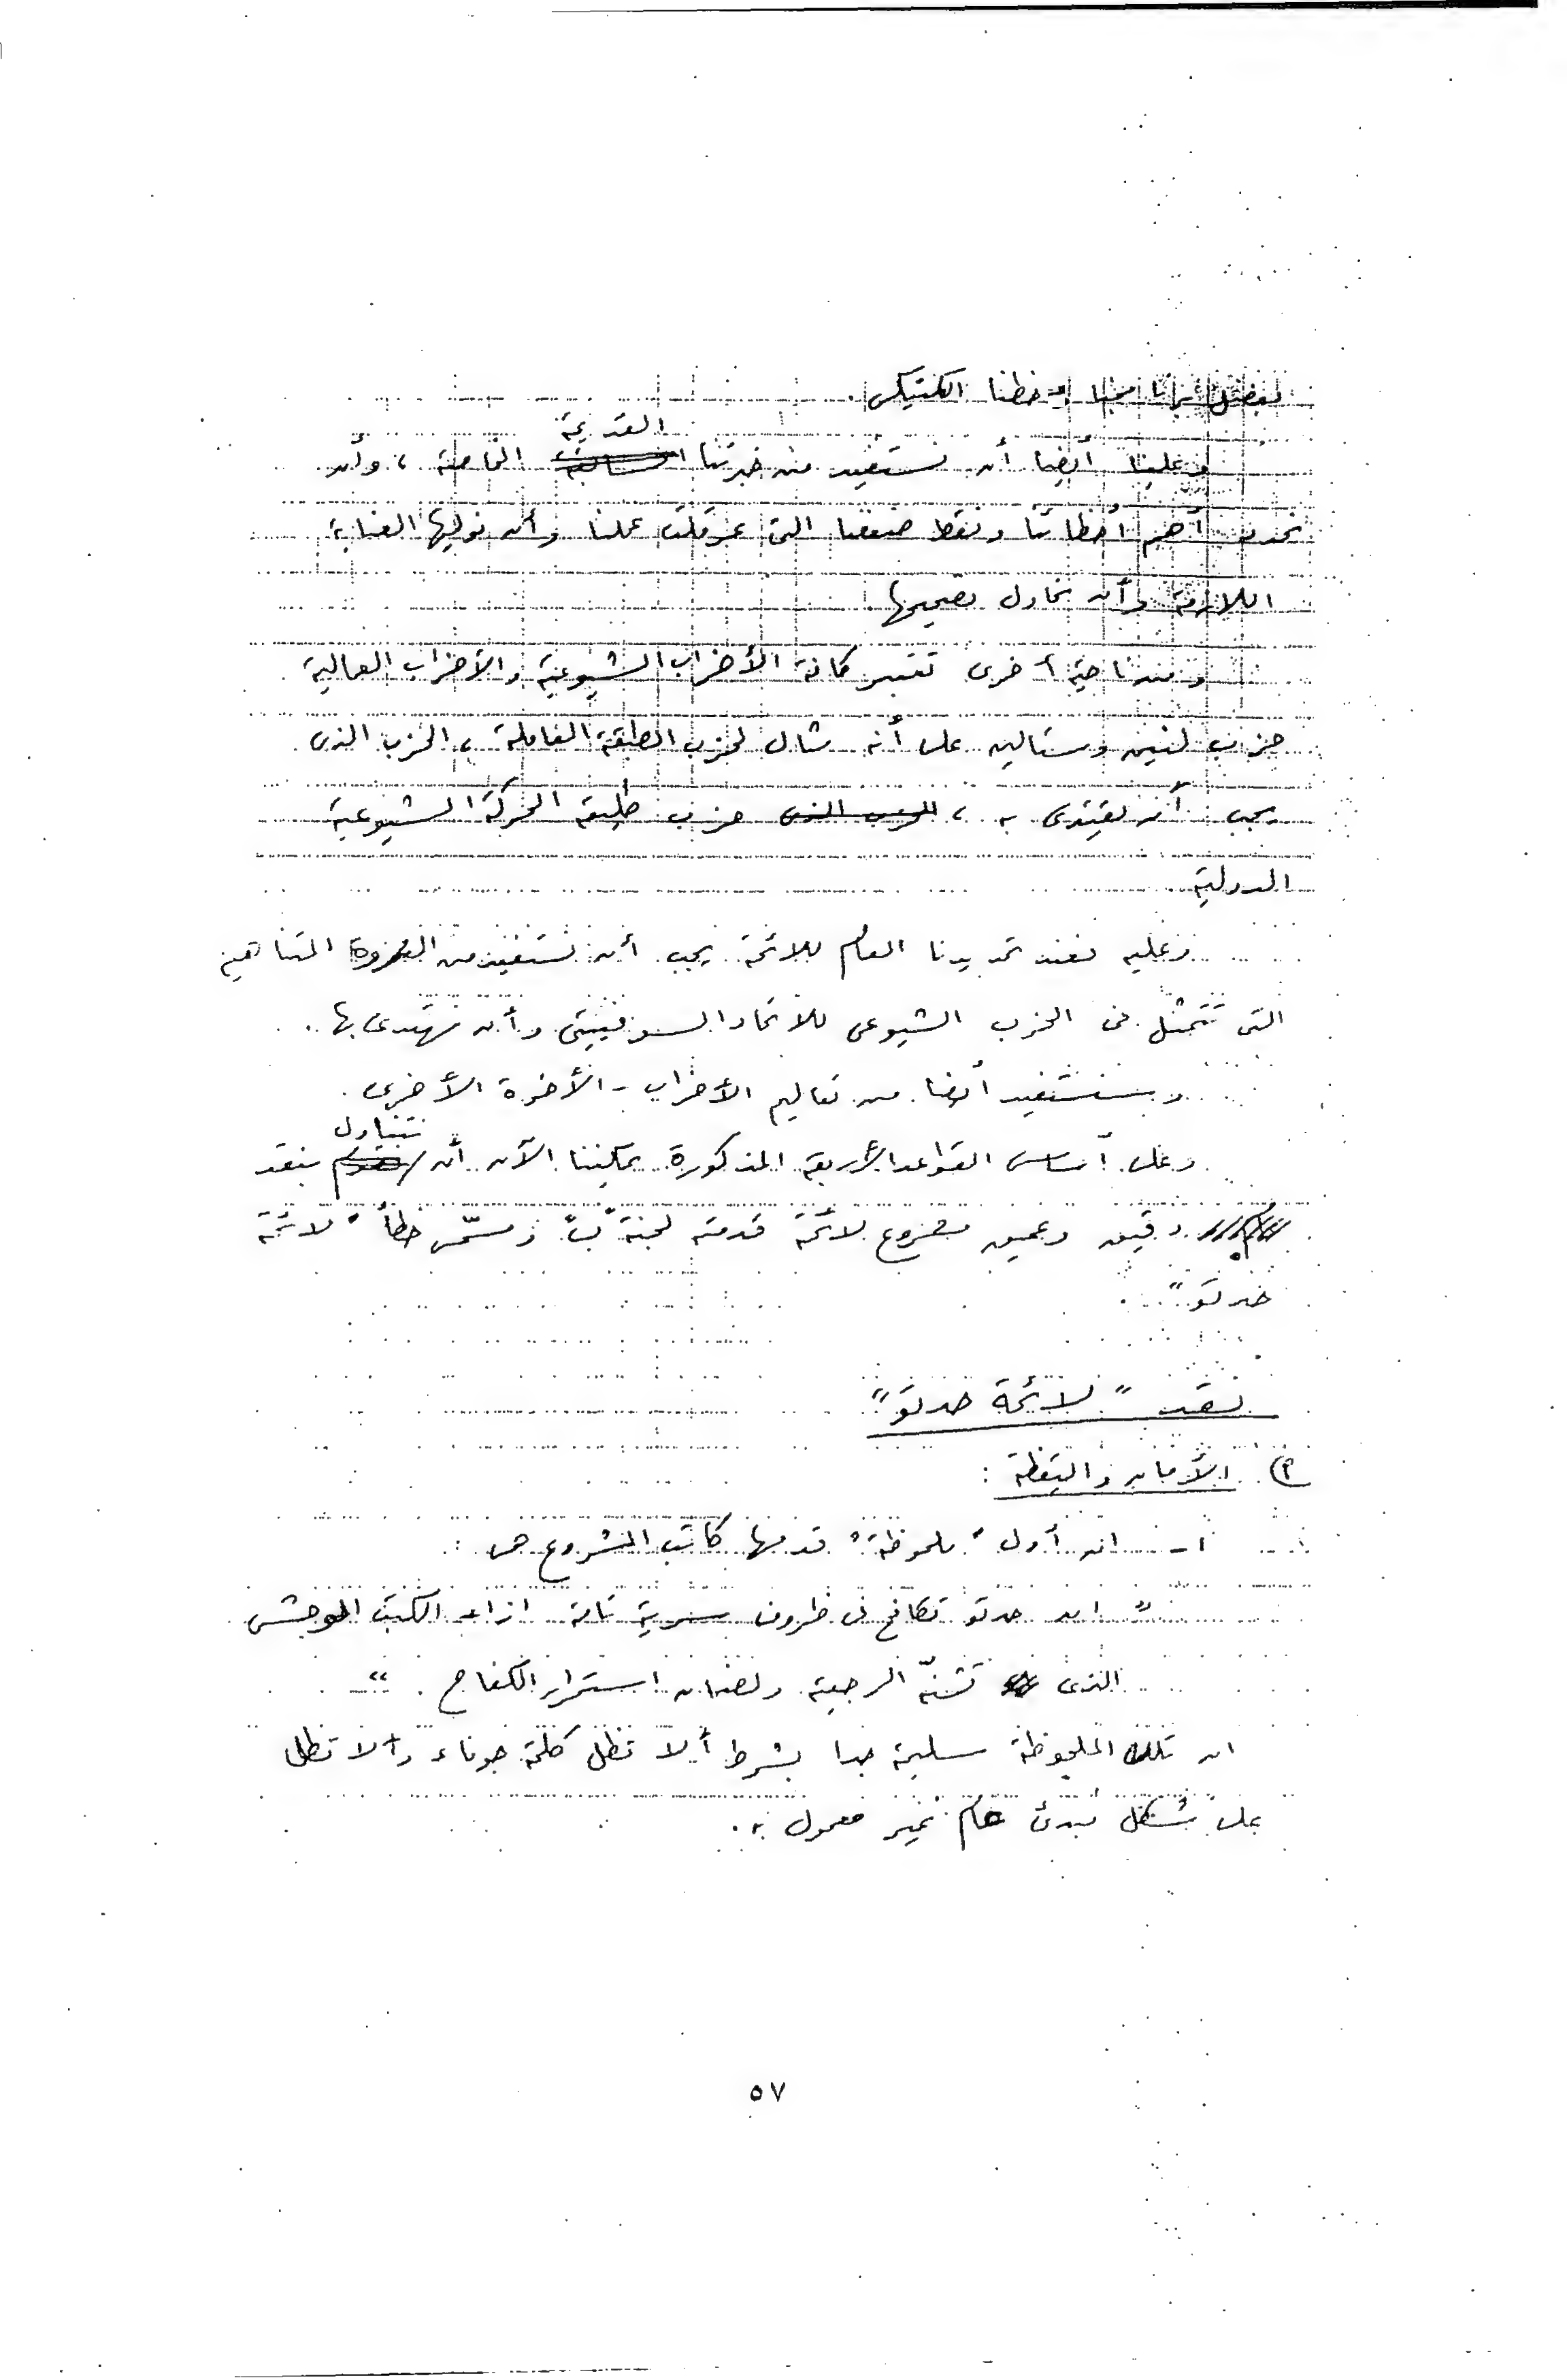 بفضل برنامجنا وخطنا التكتيكى.
القديمة
وعلينا أيضا أن نستفيد من خبرتنا الخاصة ، وأن
نحدد أهم أخطائنا ونقط ضعفنا التى عرقلت عملنا وأن نوليها العناية
اللازمة وأن نحاول تصحيحها
ومن ناحية أخرى تعتبر كافة الأحزاب الشيوعية والأحزاب العمالية
حزب لنين وستالين على أنه مثال لحزب الطبقة العاملة ، الحزب الذى
يجب أن يقتدى به ، الحزب الذى حزب طليعة الحركة الشيوعية
الدولية
وعليه فعند تحديدنا العام للائحة يجب أن نستفيد من المتناهية
التى تتمثل فى الحزب الشيوعى للاتحاد السوفييتى وأن نهتدى بها .
وسنستفيد أيضا من تعاليم الأحزاب - الأخوة الأخرى .
نتناول
وعلى أساس القواعد الأربعة المذكورة يمكننا الآن أن نقوم بنقد
دقيق وعميق مشروع لائحة قدمته لجنة "ب" ومسمى خطأ " لائحة
حدتو " .
نقد " لائحة حدتو "
٢) الأمان واليقظة :
أ - ان أول " ملحوظة " قدمها كاتب المشروع هى :
" ان حدتو تكافح فى ظروف سرية تامة ازاء الكبت الوحشى
الذى تشنّه الرجعية ولضمان استمرار الكفاح . "
ان تلك الملحوظة سليمة جدا بشرط ألا تظل كلمة جوفاء وألا تظل
على شكل مبدئ عام غير معمول به .
٥٧